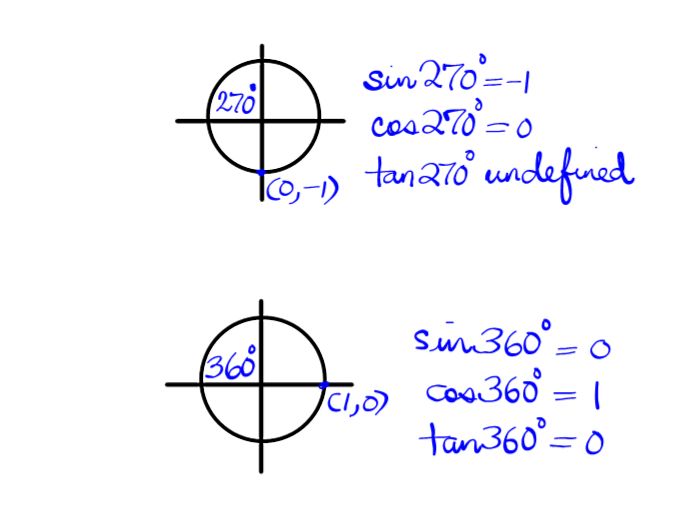 270°
sin 270° = -1
cos 270° = 0
tan 270° undefined
(0,-1)
360°
sin 360° = 0
cos 360° = 1
tan 360° = 0
(1,0)